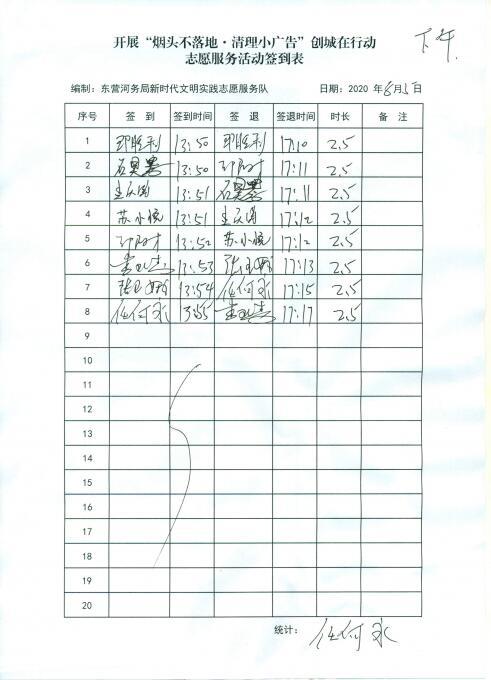 下午.
开展“烟头不落地·清理小广告”创城在行动
志愿服务活动签到表
编制：东营河务局新时代文明实践志愿服务队 日期：2020 年8月15日
序号 签 到 签到时间 签 退 签退时间 时长 备 注
1 邓胜利 13:50 邓胜利 17:10 2.5
2 13:50 17:11 2.5
3 13:51 17:11 2.5
4 苏小悦 13:51 17:12 2.5
5 13:52 苏小悦 17:12 2.5
6 13:53 17:13 2.5
7 13:54 任何永 17:15 2.5
8 任何永 13:55 17:17 2.5
9
10
11
12
13
14
15
16
17
18
19
20
统计： 任何永